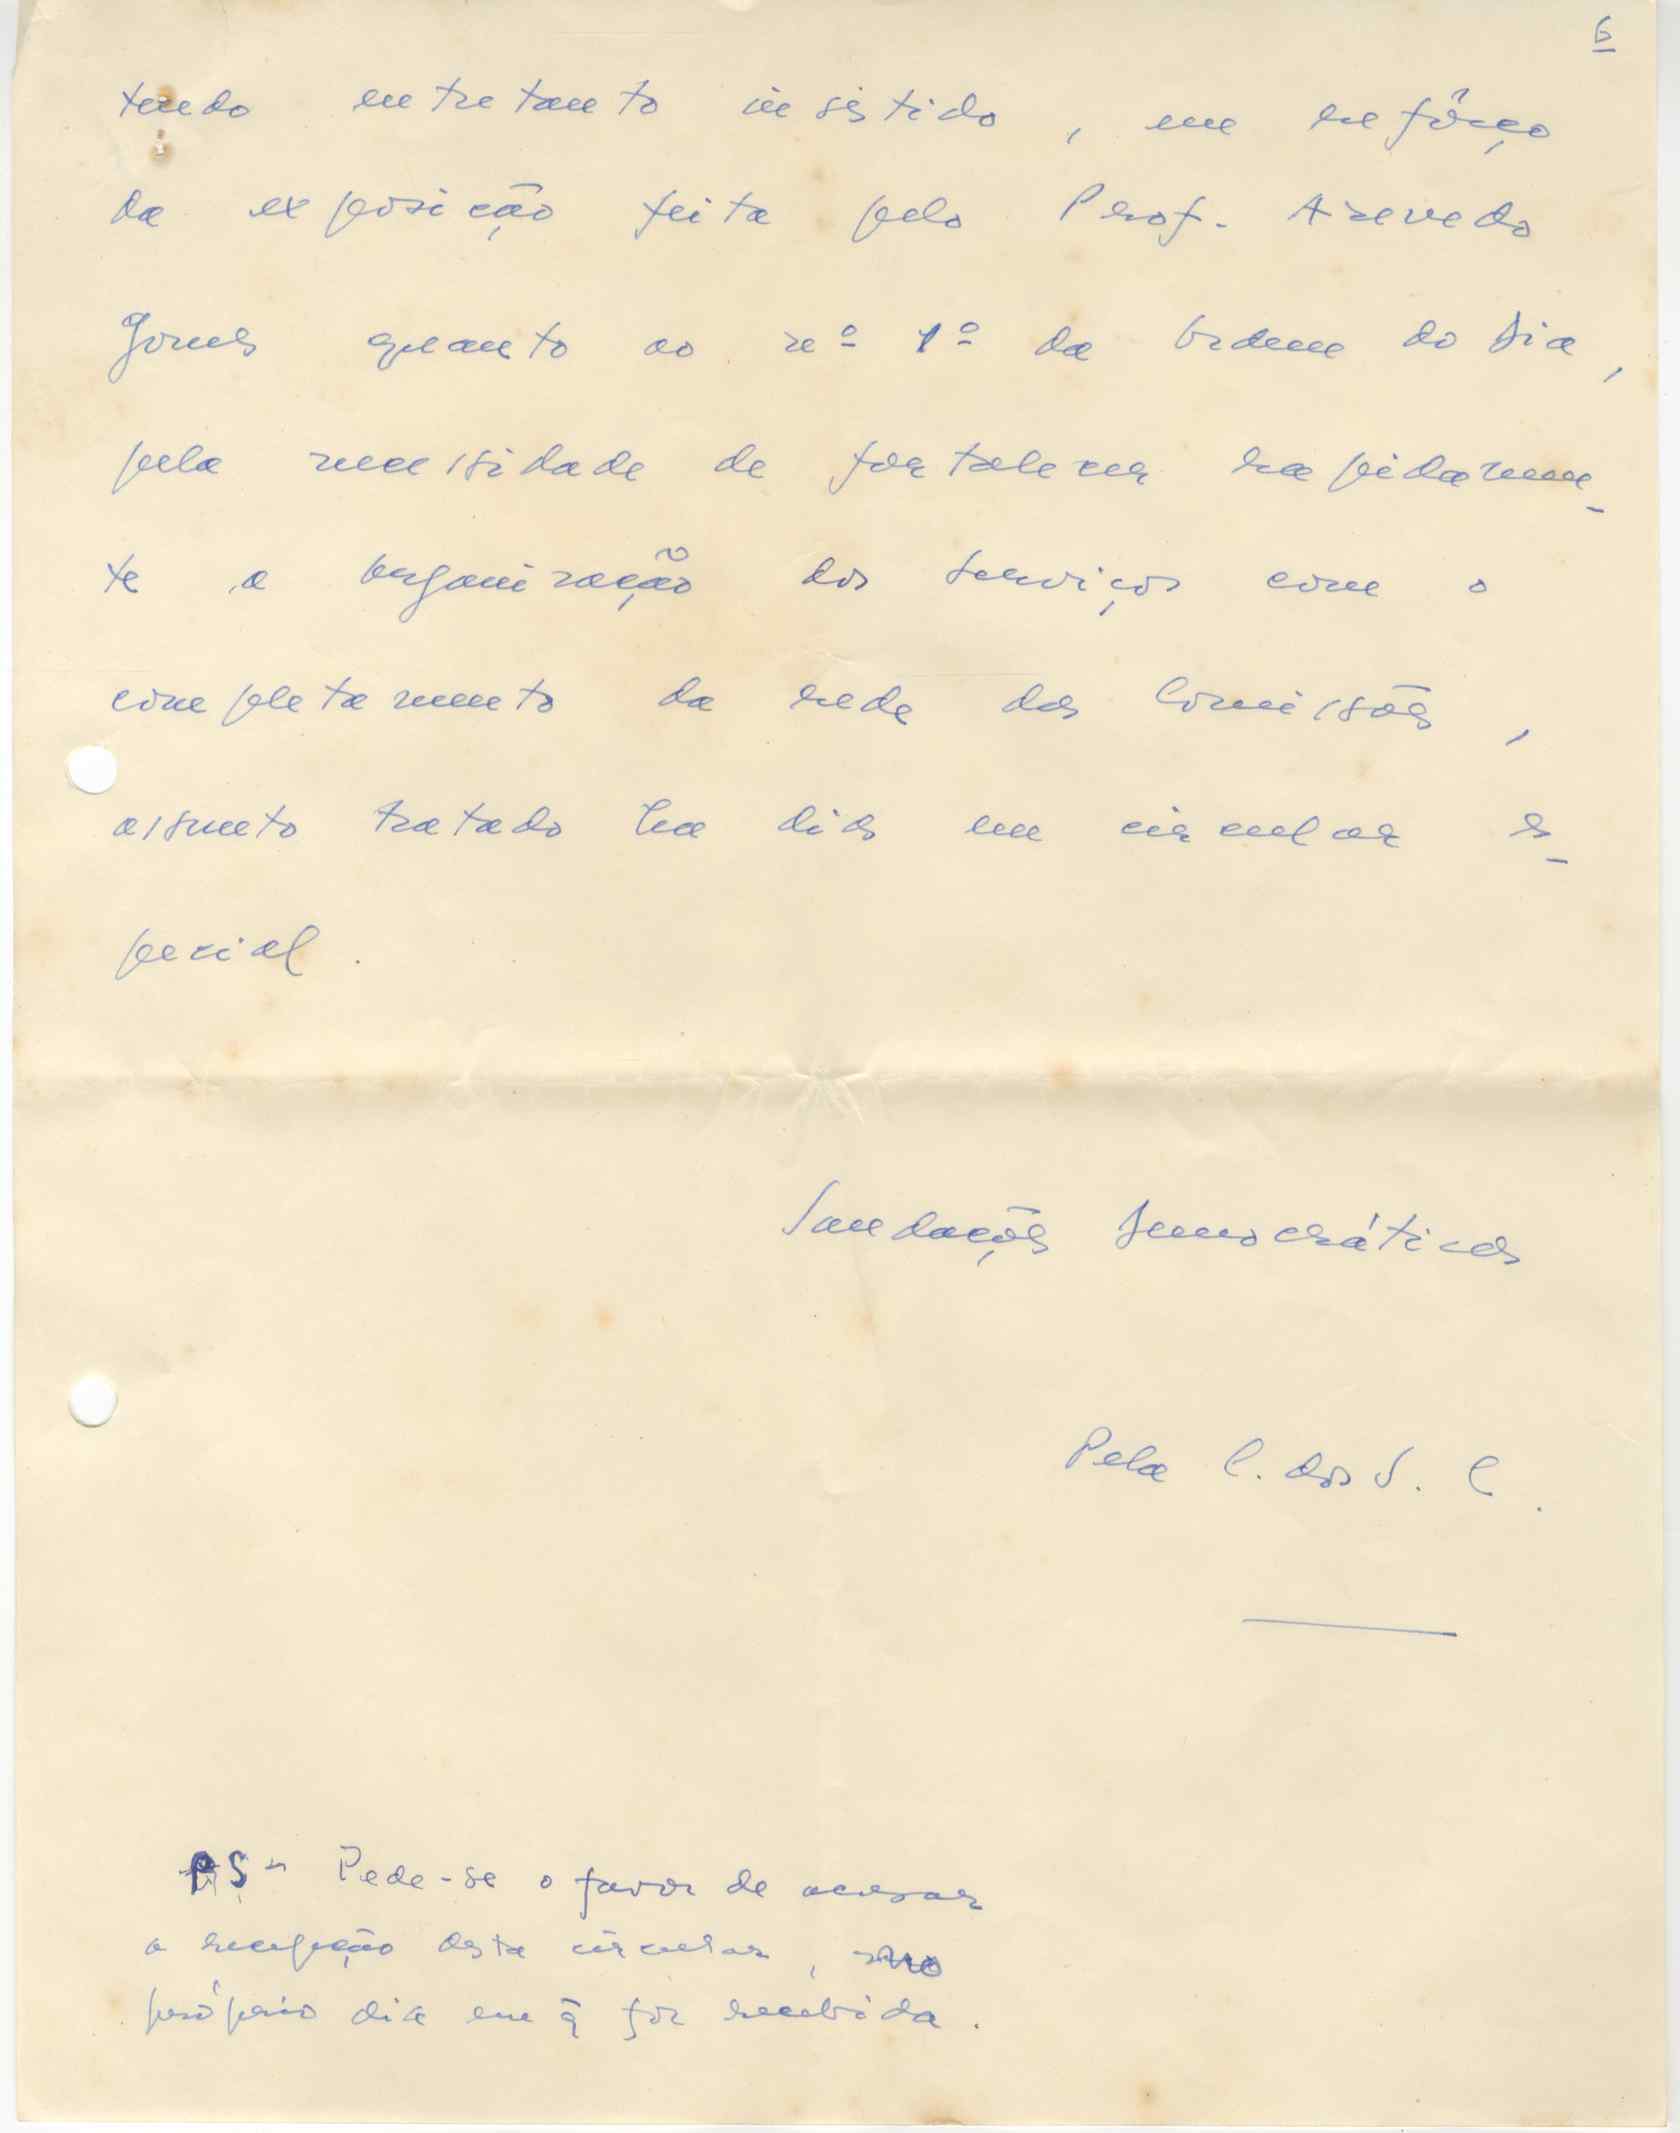 6
tendo entretanto insistido, em refôrço
da exposição feita pelo Prof. Azevedo
Gomes quanto ao nº 1º da Ordem do Dia,
pela necessidade de fortalecer rapidamen-
te a organização dos Serviços com o
completamento da rede das Comissões,
assunto tratado ha dias em circular es-
pecial.
Saudações Democráticas
Pela C. dos S. C.
PS - Pede-se o favor de acusar
a recepção desta circular, no
próprio dia em q̃ for recebida.